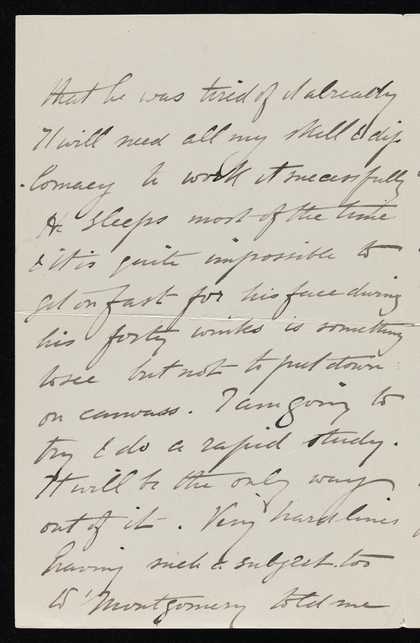 that he was tired of it already
It will need all my skill & dip
lomacy to work it successfully
He sleeps most of the time
& it is quite impossible to
get on fast for his face during
his forty winks is something
to see but not to put down
on canvass. I am going to
try & do a rapid study.
It will be the only way
out of it. Very hard lines
having such a subject too
Montgomery told me